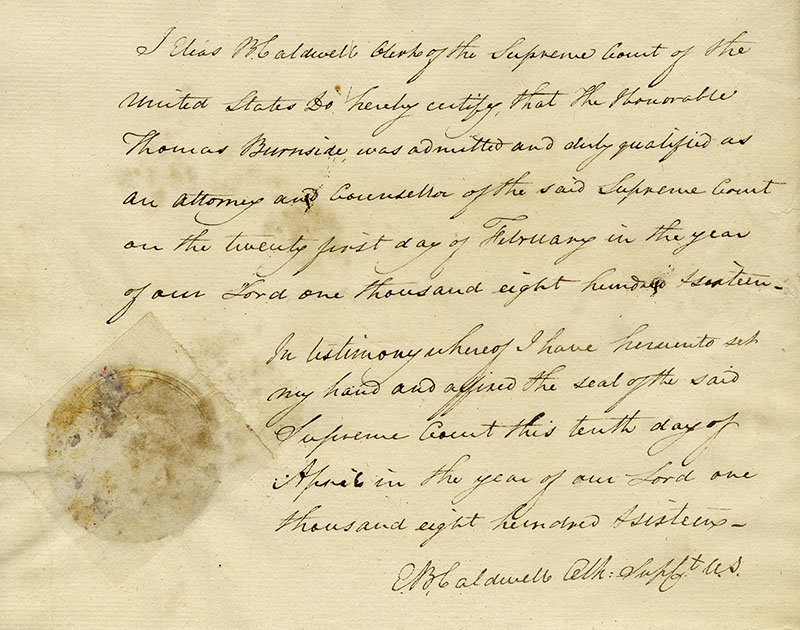 I Elias B Caldwell Clerk of the Supreme Court of the
United States Do hereby certify, that the Honorable
Thomas Burnside, was admitted and duly qualified as
an attorney and Counsellor of the said Supreme Court
on the twenty first day of February in the year
of our Lord one thousand eight hundred & sixteen -
In testimony whereof I have hereunto set
my hand and affixed the seal of the said
Supreme Court this tenth day of
April in the year of our Lord one
thousand eight hundred & sixteen -
E. B. Caldwell Clk: Sup Ct U.S.